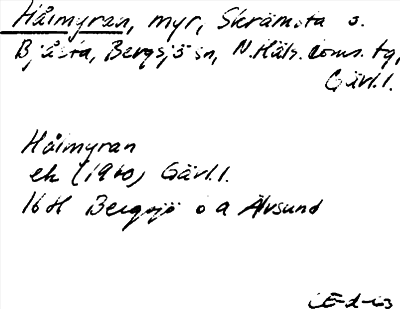 Hålmyran, myr, Skrämsta o.
Bjåsta, Bergsjö sn, N. Häls. doms. tg,
Gävl. l.
Hålmyran
ek (1960) Gävl. l.
16H Bergsjö o a Älvsund